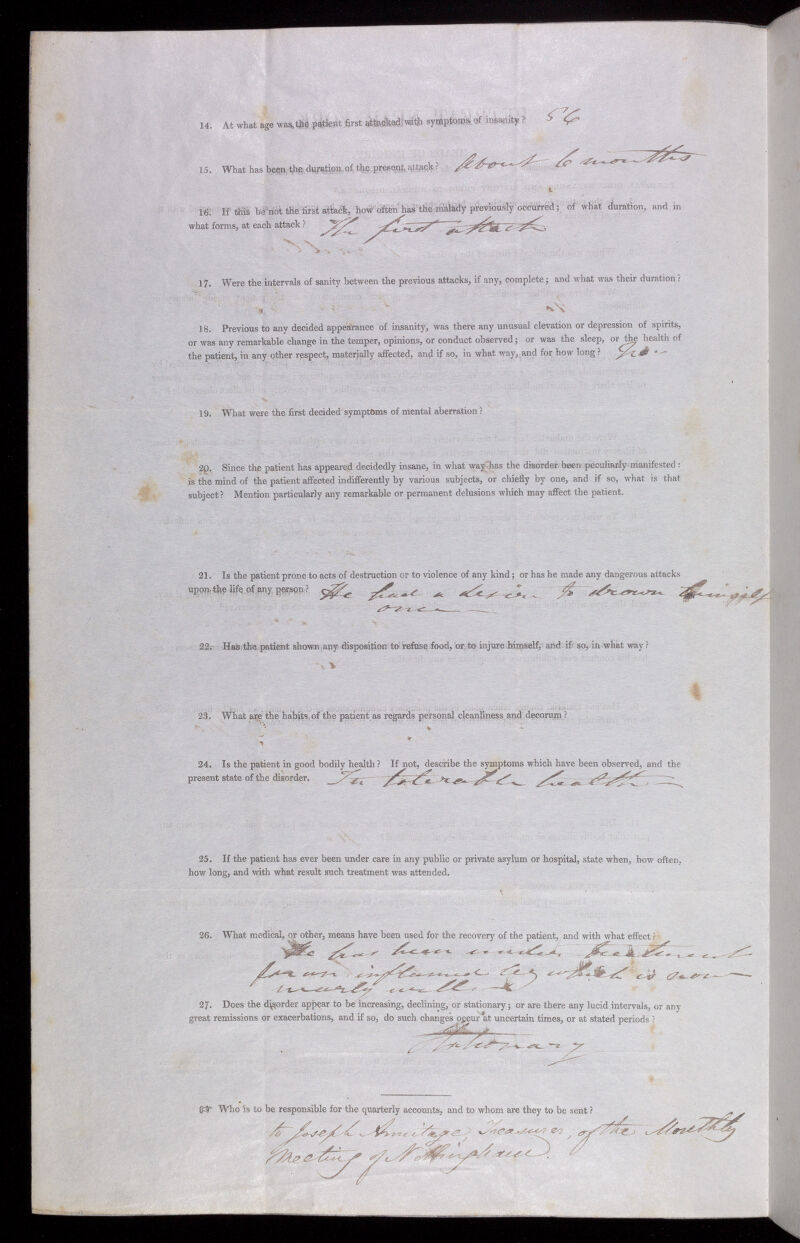 14. At what age was the patient first attacked with symptoms of insanity? 56
15. What has been the duration of the present attack? About 6 months
16. If this be not the first attack, how often has the malady previously occurred; of what duration, and in
what forms, at each attack? The first attack
17. Were the intervals of sanity between the previous attacks, if any, complete; and what was their duration?
18. Previous to any decided appearance of insanity, was there any unusual elevation or depression of spirits,
or was any remarkable change in the temper, opinions, or conduct observed; or was the sleep, or the health of
the patient, in any other respect, materially affected, and if so, in what way, and for how long? No.-
19. What were the first decided symptoms of mental aberration?
20. Since the patient has appeared decidedly insane, in what way has the disorder been peculiarly manifested:
is the mind of the patient affected indifferently by various subjects, or chiefly by one, and if so, what is that
subject? Mention particularly any remarkable or permanent delusions which may affect the patient.
21. Is the patient prone to acts of destruction or to violence of any kind; or has he made any dangerous attacks
upon the life of any person? He had a desire to drown himself
once
22. Has the patient shown any disposition to refuse food, or to injure himself, and if so, in what way?
23. What are the habits of the patient as regards personal cleanliness and decorum?
24. Is the patient in good bodily health? If not, describe the symptoms which have been observed, and the
present state of the disorder. In tolerable health
25. If the patient has ever been under care in any public or private asylum or hospital, state when, how often,
how long, and with what result such treatment was attended.
26. What medical, or other, means have been used for the recovery of the patient, and with what effect?
He has been under treatment
for an inflamed leg which is now
nearly well
27. Does the disorder appear to be increasing, declining, or stationary; or are there any lucid intervals, or any
great remissions or exacerbations, and if so, do such changes occur at uncertain times, or at stated periods?
Stationary
☞ Who is to be responsible for the quarterly accounts, and to whom are they to be sent?
to Joseph Armitage, Treasurer, of the Monthly
Meeting of Nottingham.